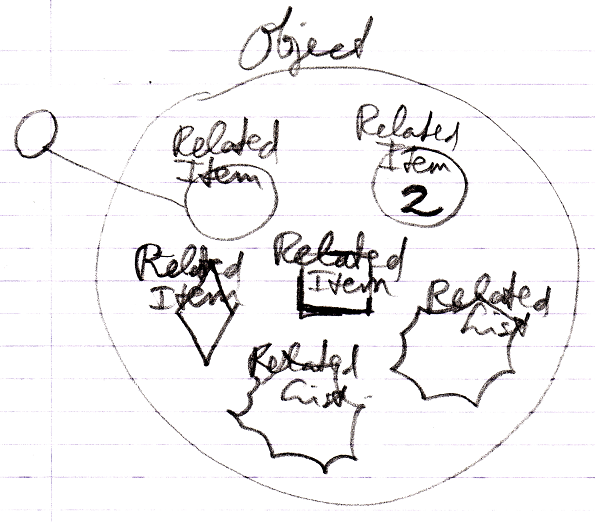 Object
Related
Item
Related
Item
2
Related
Item
Related
Item
Related
List
Related
List